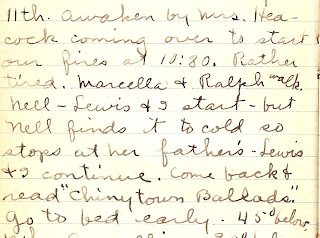 11th. Awaken by Mrs. Hea-
cock coming over to start
our fires at 10:30. Rather
tired. Marcella & Ralph walk.
Nell - Lewis & I start - but
Nell finds it to cold so
stops at her father's - Lewis
& I continue. Come back &
read "Chinytown Ballads".
Go to bed early. . 45° below